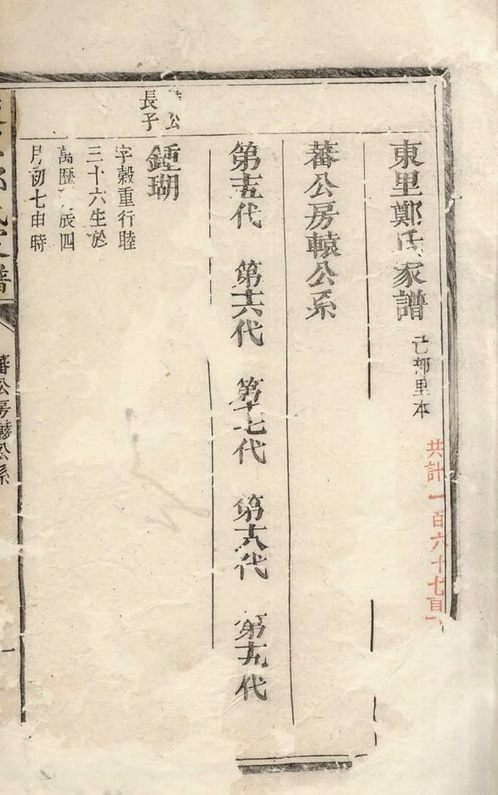 共計一百六十七頁
東里鄭氏家譜 里本
蕃公房轅公系
第十五代 第十六代 第十七代 第十八代 第十九代
公
長子
鍾瑚
字榖重行睦
三十六生於
萬歷 辰四
月初七申時
譜
蕃公房轅公系
一